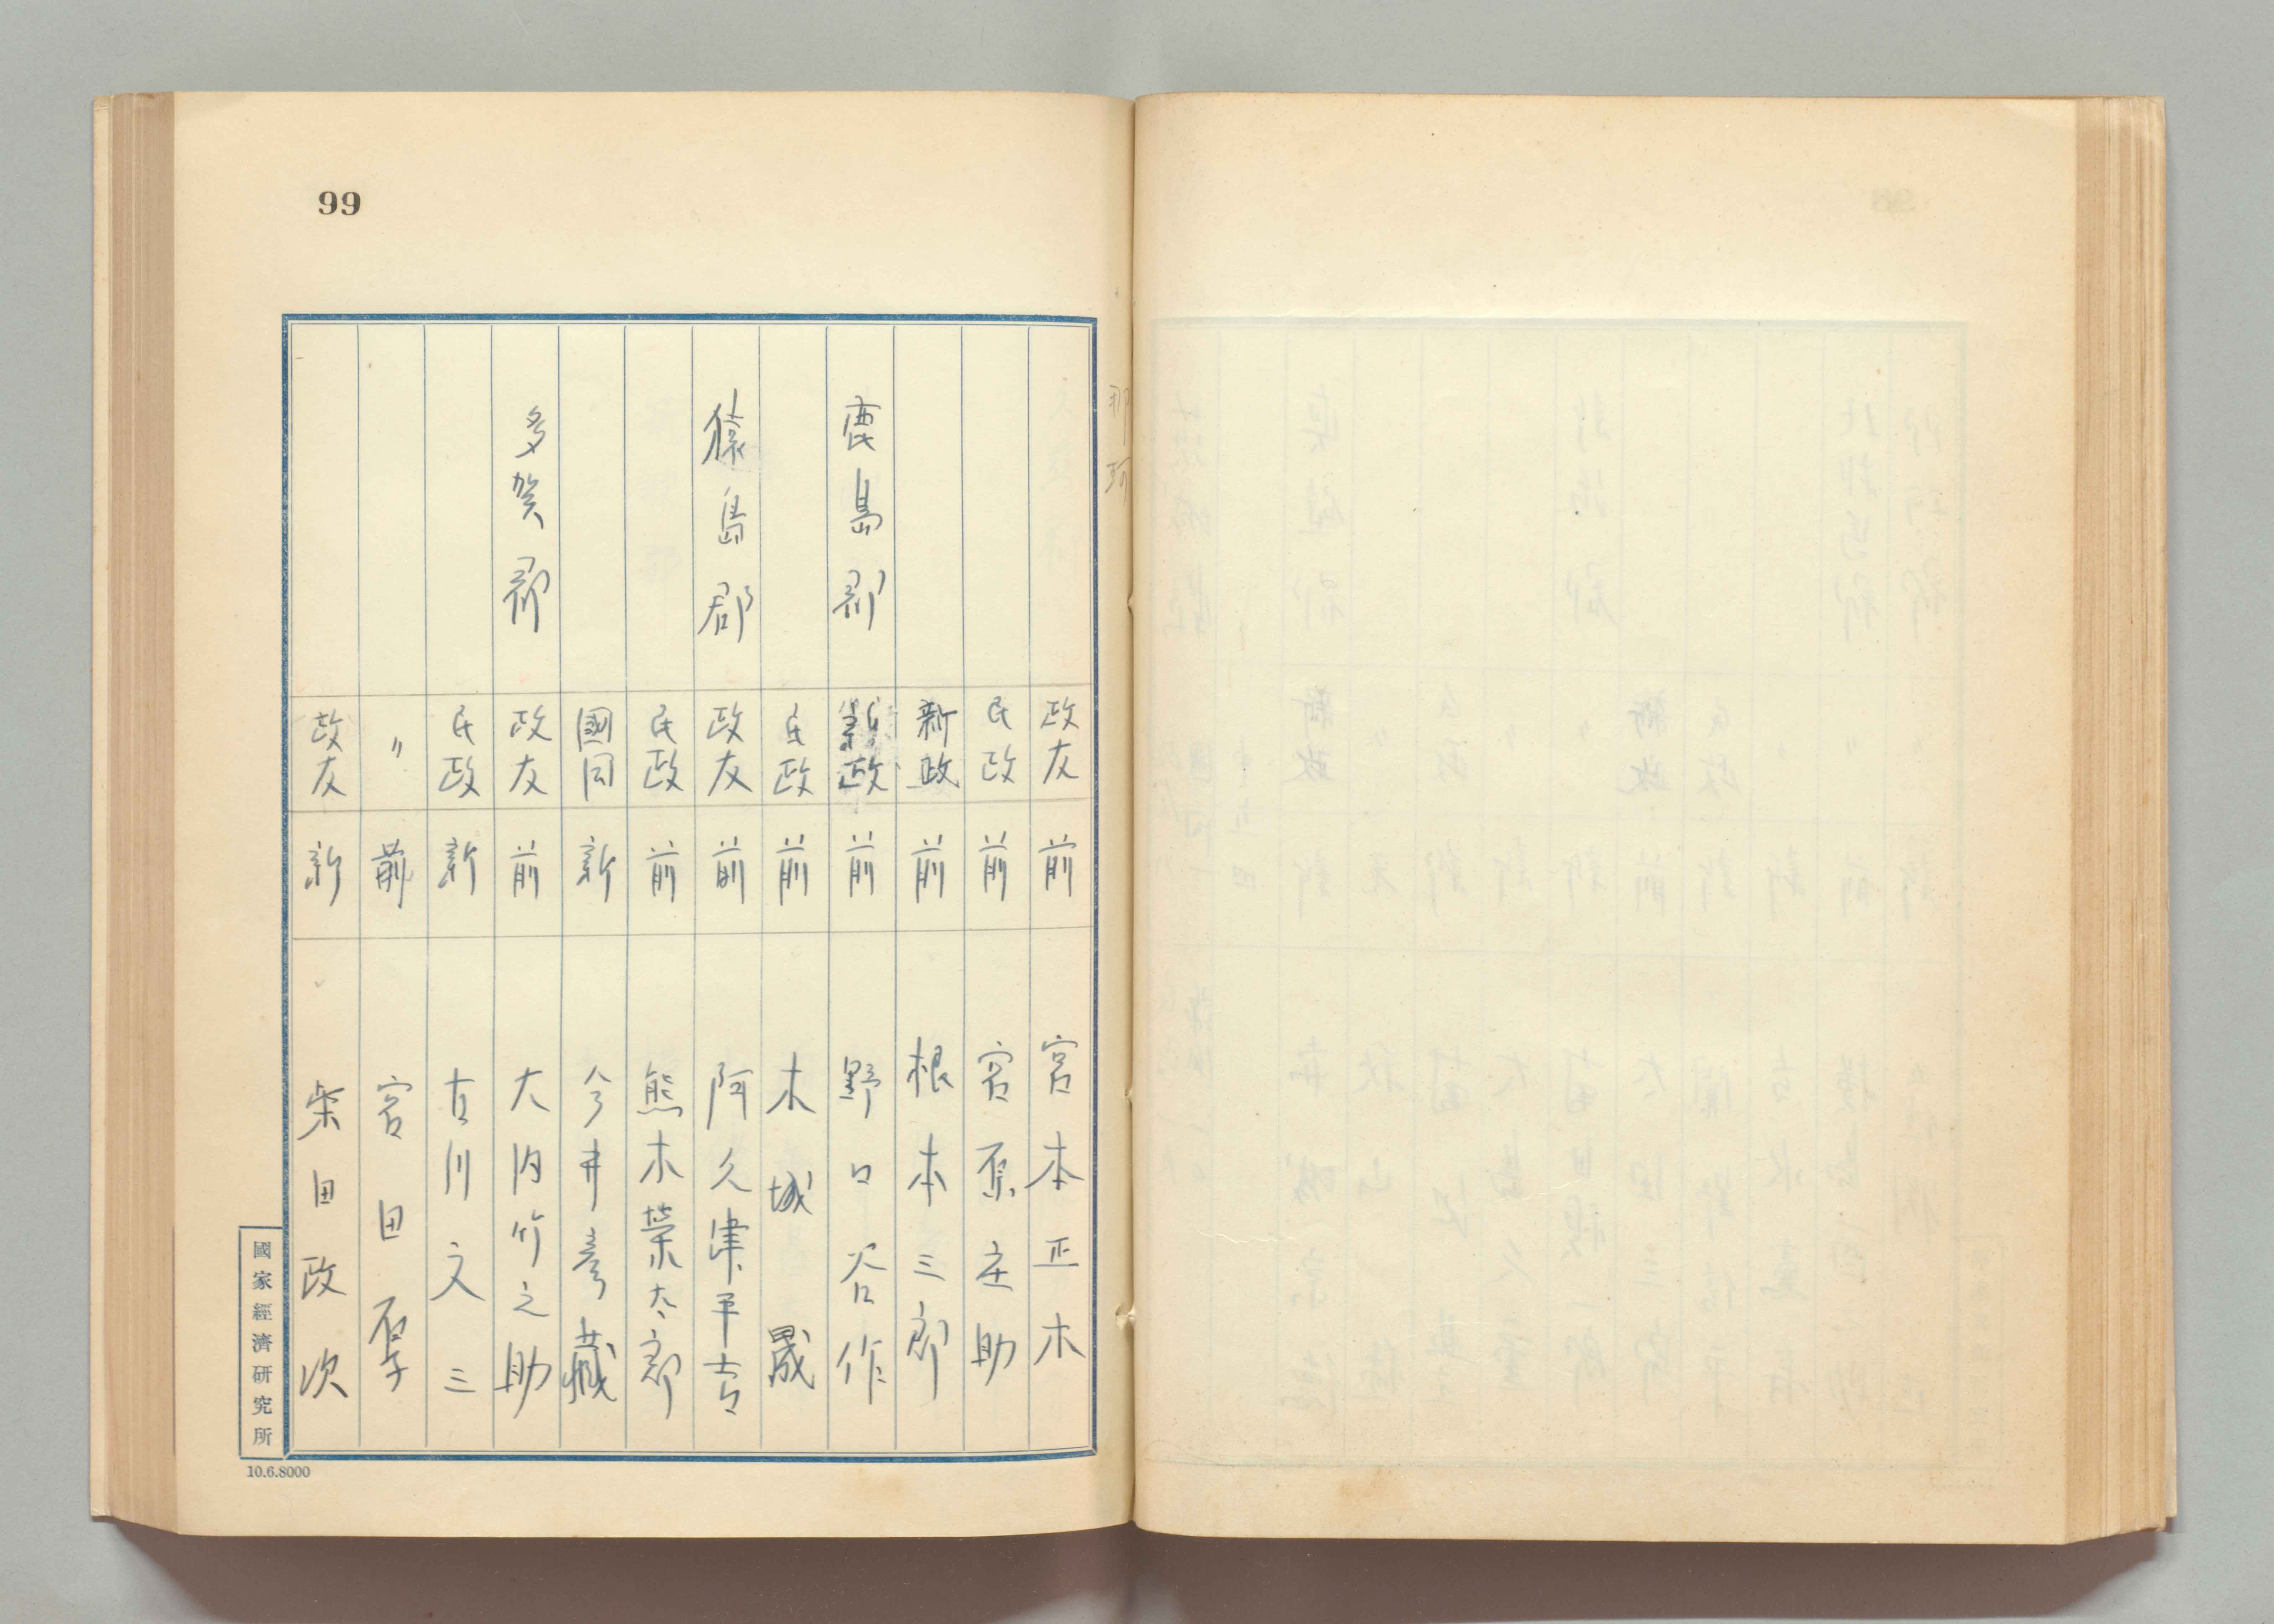 99
那珂
政友 前 宮本正木
民政 前 宮原庄助
新政 前 根本三郎
鹿島郡 政 前 野口谷作
民政 前 木城晟
猿島郡 政友 前 阿久津平吉
民政 前 熊木榮太郎
國同 新 今井彦藏
多賀郡 政友 前 大内竹之助
民政 新 古川文三
〃 前 宮田
政友 新 柴田政次
國家經濟研究所
10.6.8000